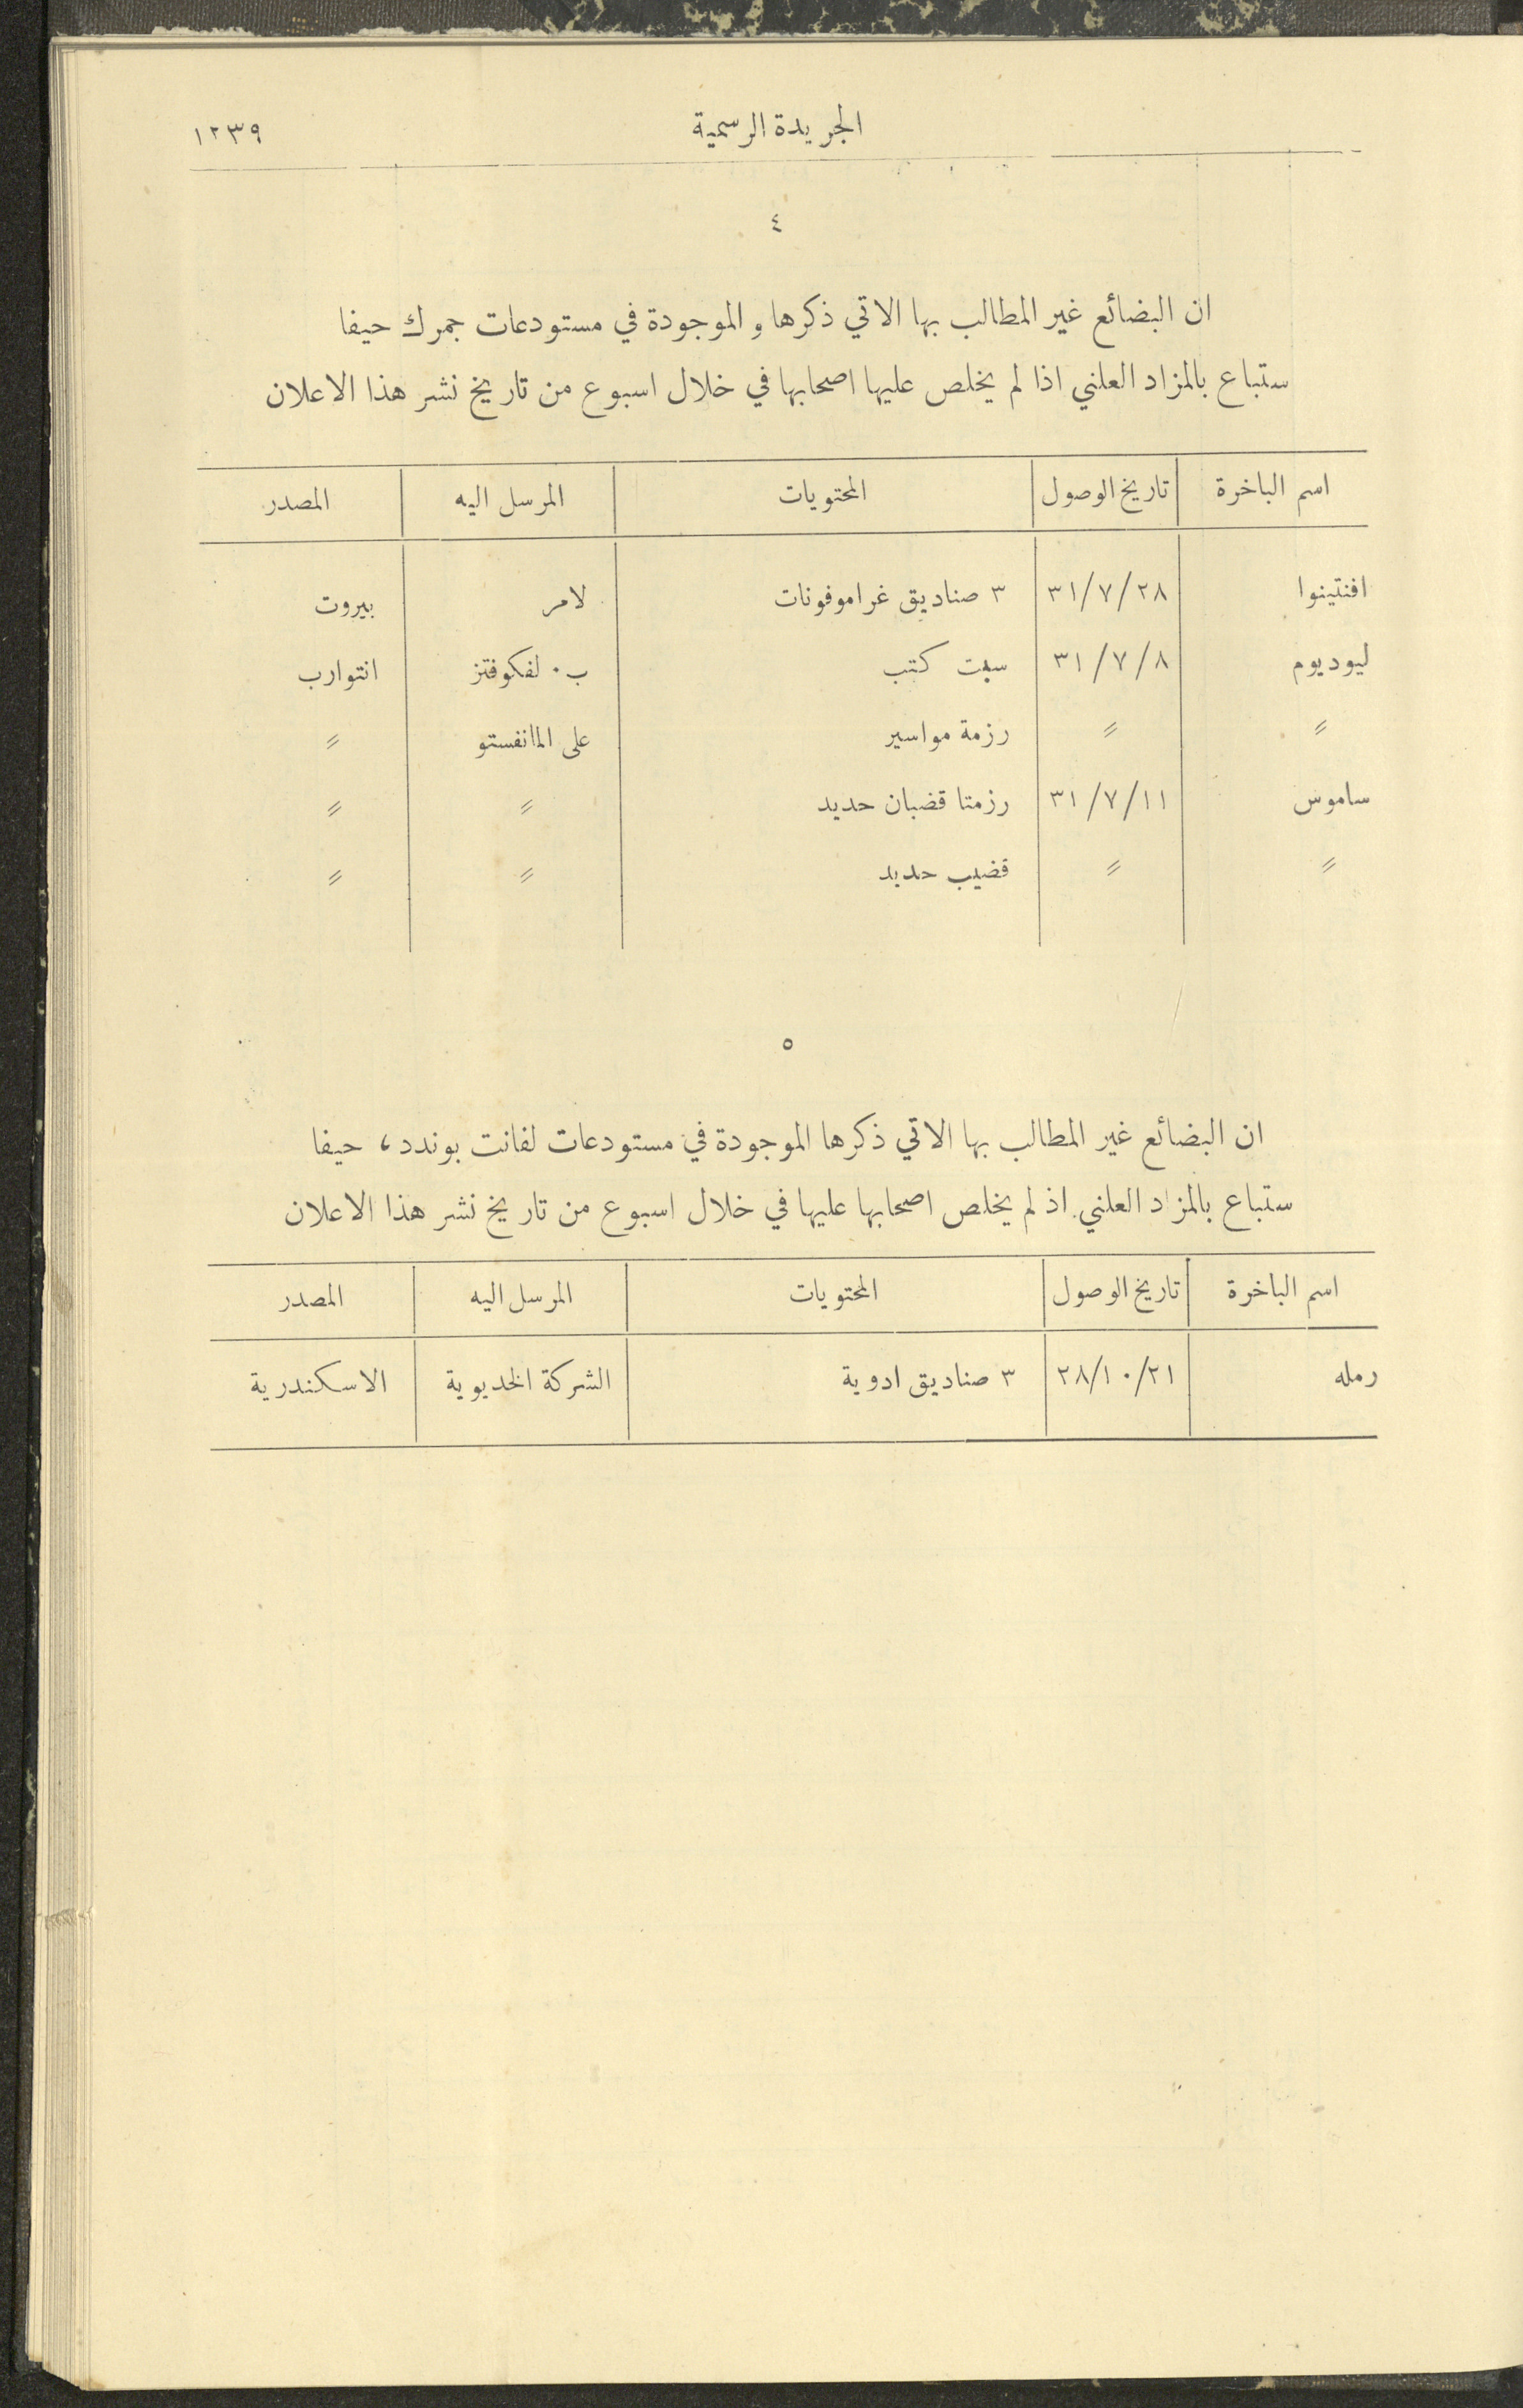 الجريدة الرسمية ١٢٣٩
٤
ان البضائع غير المطالب بها الاتي ذكرها والموجودة في مستودعات جمرك حيفا
ستباع بالمزاد العلني اذا لم يخلص عليها اصحابها في خلال اسبوع من تاريخ نشر هذا الاعلان
اسم الباخرة تاريخ الوصول المحتويات المرسل اليه المصدر
افنتينوا ٣١/٧/٢٨ ٣ صناديق غراموفونات لامر بيروت
ليوديوم ٣١/٧/٨ سبت كتب ب. لفكوفتز انتوارب
〃 〃 رزمة مواسير على الماانفستو 〃
ساموس ٣١/٧/١١ رزمتا قضبان حديد 〃 〃
〃 〃 قضيب حديد 〃 〃
٥
ان البضائع غير المطالب بها الاتي ذكرها الموجودة في مستودعات لفانت بوندد، حيفا
ستباع بالمزاد العلني اذ لم يخلص اصحابها عليها في خلال اسبوع من تاريخ نشر هذا الاعلان
اسم الباخرة تاريخ الوصول المحتويات المرسل اليه المصدر
رمله ٢٨/١٠/٢١ ٣ صناديق ادوية الشركة الخديوية الاسكندرية